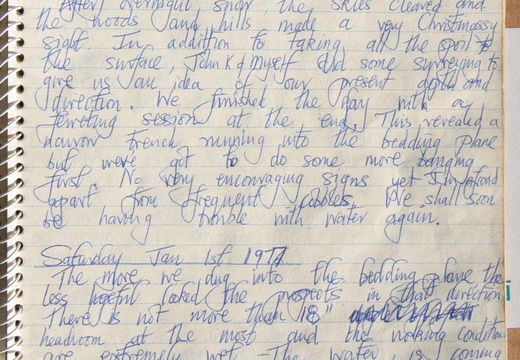 After overnight snow the skies cleared and
the woods and hills made a very Christmassy
sight. In addition to taking all the spoil to
the surface, John K & myself did some surveying to
give us an idea of our present depth and
direction. We finished the day with a
session at the end. This revealed a
narrow trench running into the bedding plane
but we've got to do some more banging
first. No very encouraging signs yet I'm afraid
apart from frequent cobbles. We shall soon
be having trouble with water again.
Saturday Jan 1st 1977
The more we dug into the bedding plane the
less hopeful looked the prospects in that direction
There is not more than 18"
headroom at the most and the working conditions
are extremely wet. The water is coming